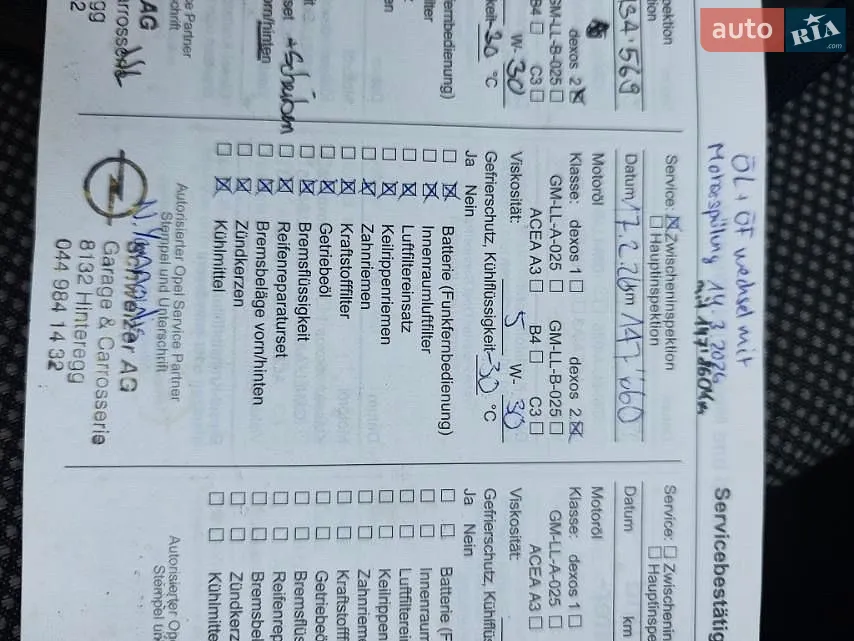 auto RIA.com
ÖL + ÖF wechsel mit
Motorspülung 14.2.2026
Servicebestätig
pektion
tion
134.569
dexos 2 ☒
GM-LL-B-025 ☐
B4 ☐ C3 ☐
W-30
keit-30 °C
ernbedienung)
ilter
en
set + Scheiben
orn/hinten
e Partner
schrift
AG
arrosserie
egg
2
Service: ☒ Zwischeninspektion
☐ Hauptinspektion
Datum 17.2.26 km 147'060
Motoröl
Klasse: dexos 1 ☐ dexos 2 ☒
GM-LL-A-025 ☐ GM-LL-B-025 ☐
ACEA A3 ☐ B4 ☐ C3 ☐
Viskosität: 5 W-30
Gefrierschutz, Kühlflüssigkeit -30 °C
Ja Nein
☐ ☒ Batterie (Funkfernbedienung)
☐ ☒ Innenraumluftfilter
☐ ☒ Luftfiltereinsatz
☐ ☒ Keilrippenriemen
☐ ☒ Zahnriemen
☐ ☒ Kraftstofffilter
☐ ☒ Getriebeöl
☐ ☒ Bremsflüssigkeit
☐ ☒ Reifenreparaturset
☐ ☒ Bremsbeläge vorn/hinten
☐ ☒ Zündkerzen
☐ ☒ Kühlmittel
Autorisierter Opel Service Partner
Stempel und Unterschrift
Schweizer AG
Garage & Carrosserie
8132 Hinteregg
044 984 14 32
Service: ☐ Zwischenin
☐ Hauptinsp
Datum km
Motoröl
Klasse: dexos 1 ☐
GM-LL-A-025 ☐
ACEA A3 ☐
Viskosität:
Gefrierschutz, Kühlflü
Ja Nein
☐ ☐ Batterie (F
☐ ☐ Innenraum
☐ ☐ Luftfilterein
☐ ☐ Keilrippen
☐ ☐ Zahnrieme
☐ ☐ Kraftstofff
☐ ☐ Getriebeö
☐ ☐ Bremsflüs
☐ ☐ Reifenrep
☐ ☐ Bremsbel
☐ ☐ Zündkerz
☐ ☐ Kühlmitte
Autorisierter Op
Stempel un